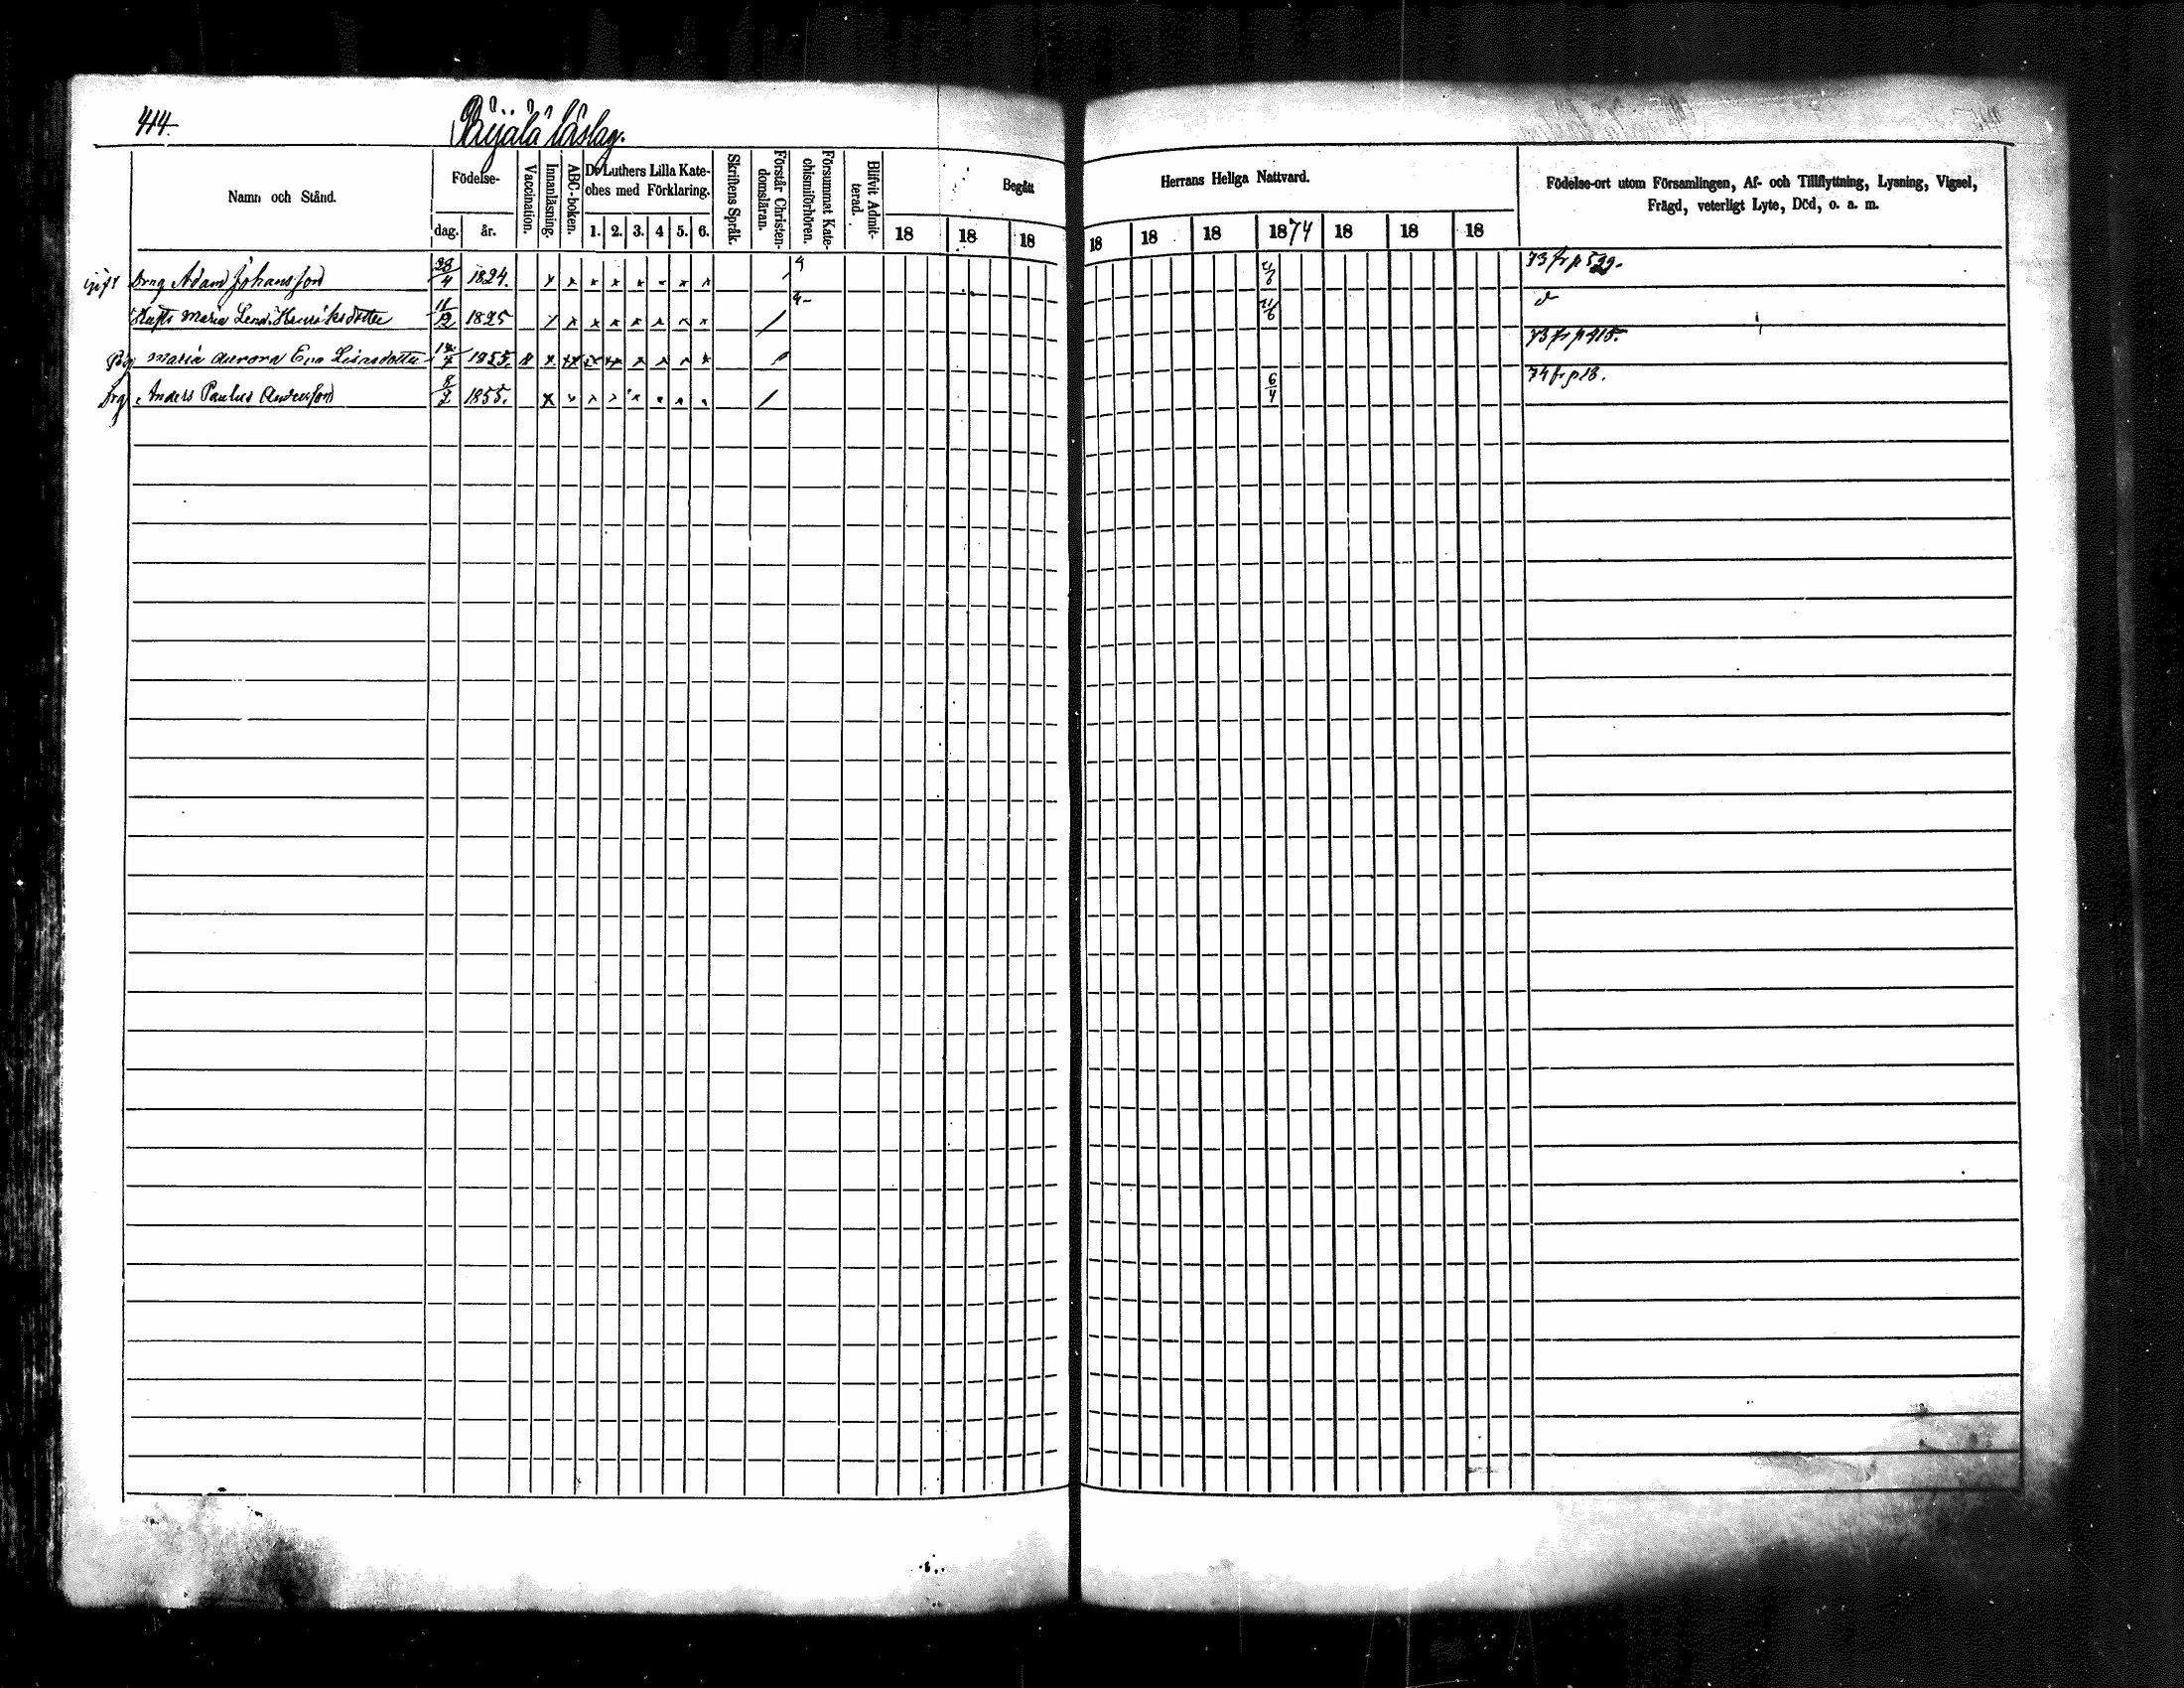 414.
Namn och Stånd.
Födelse-
dag.
år.
Vaccination.
Innanläsning.
ABC-boken.
Dr Luthers Lilla Kate-
ches med Förklaring.
1. 2. 3. 4 5. 6.
Skriftens Språk.
Förstår Christen-
domsläran.
Försummat Kate-
chismiförhören.
Blifvit Admit-
terad.
Begått
18 18 18
Herrans Heliga Nattvard.
18 18 18 1874 18 18 18
Födelse-ort utom Församlingen, Af- och Tillflyttning, Lysning, Vigsel,
Frägd, veterligt Lyte, Död, o. a. m.
gift Drng Adam Johansson 28/4 1824. 73 fr p 539.
Hustr Maria Lena Henriksdotter 11/12 1825
Pig Maria Aurora Eva 1855. 73 fr p 418.
Drg Anders Paulus Andersson 8/2 1855. 6/4 74 fr p 18.